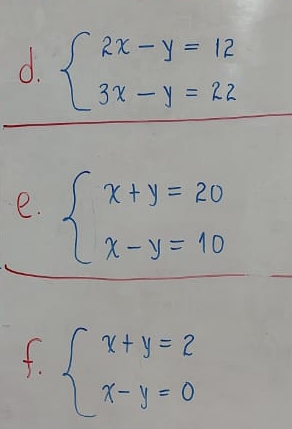 d. 2x - y = 12
3x - y = 22
e. x + y = 20
x - y = 10
f. x + y = 2
x - y = 0